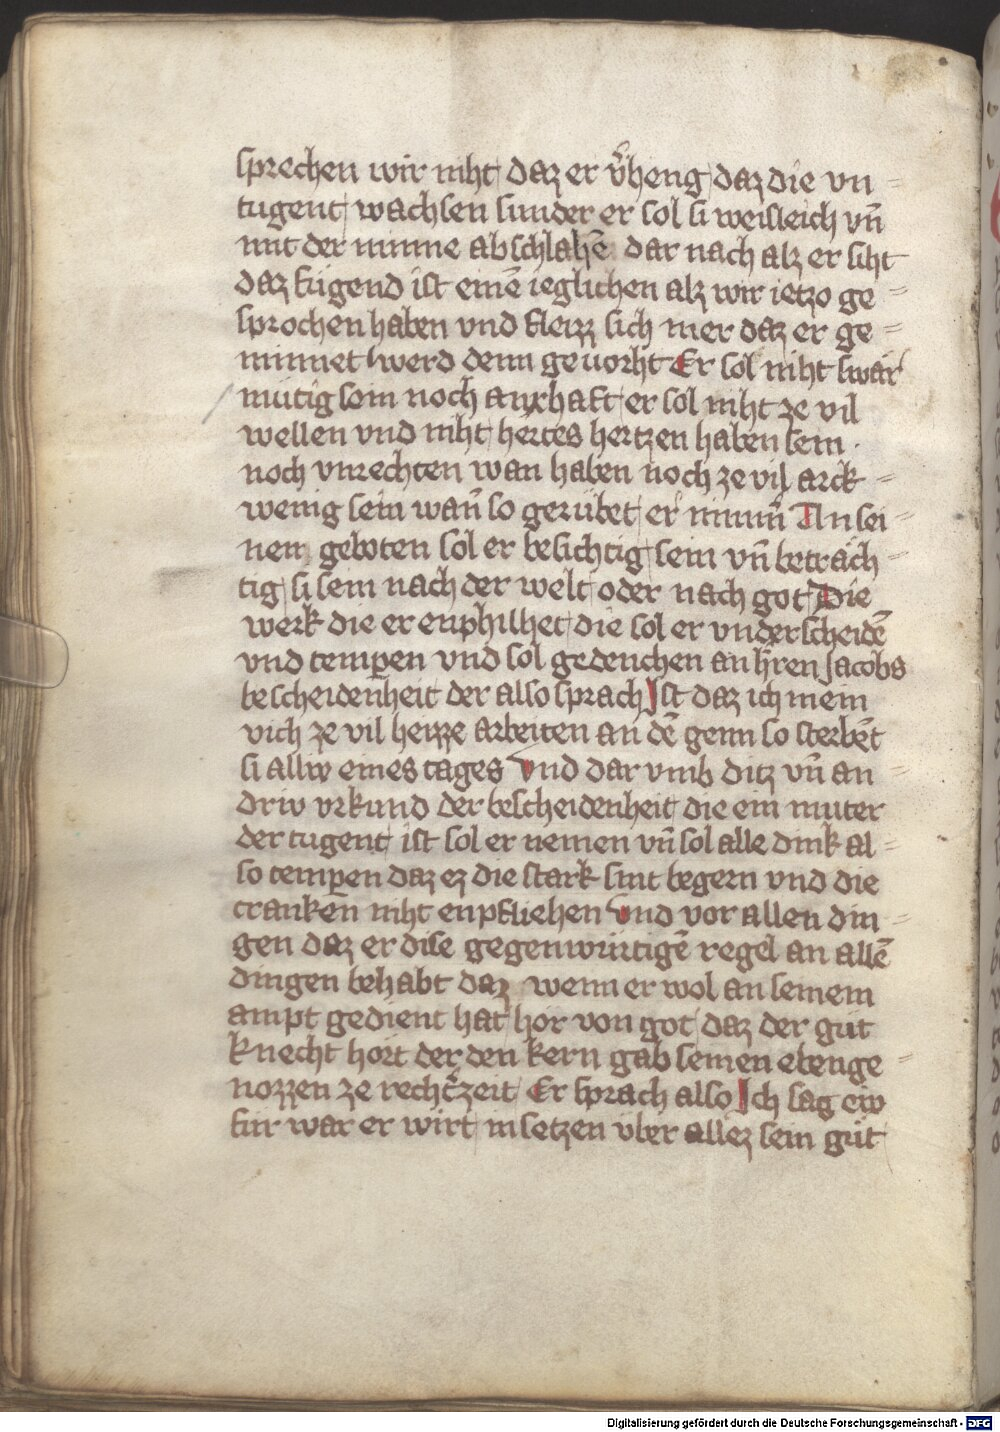 sprechen wir niht daz er v̾heng daz die vn=
tugent wachsen sunder er sol si weisleich vn̄
mit der minne abschlahē dar nach alz er siht
daz fügend ist einē ieglichen alz wir ietzo ge=
sprochen haben vnd fleizz sich mer daz er ge=
minnet werd denn gevorht Er sol niht swar
mütig sein noch anxhaft er sol niht ze vil
wellen vnd niht hertes hertzen haben sein
noch vnrechten wan haben noch ze vil arck=
wenig sein wan̄ so gerübet er nimm̄ An sei=
nem geboten sol er besichtig sein vn̄ beträch=
tig si sein nach der welt oder nach got Die
werk die er enphilhet die sol er vnderscheidē
vnd temꝑen vnd sol gedenchen an h̄ren Jacobs
bescheidenheit der also sprach Ist daz ich mein
vich ze vil heizze arbeiten an dē genn so sterbēt
si alliv eines tages Vnd dar vmb ditz vn̄ an=
driv vrkund der bescheidenheit die ein muter
der tugent ist sol er nemen vn̄ sol alle dink al=
so temꝑen daz ez die stark sint begern vnd die
cranken niht enpfliehen Vnd vor allen din=
gen daz er dise gegenwürtigē regel an allē
dingen behabt daz wenn er wol an seinem
ampt gedient hat hör von got daz der güt
knecht hort der den kern gab seinen ebenge=
nozzen ze rechter zeit Er sprach also Ich sag eiv
für war er wirt in setzen vber allez sein güt
Digitalisierung gefördert durch die Deutsche Forschungsgemeinschaft - DFG